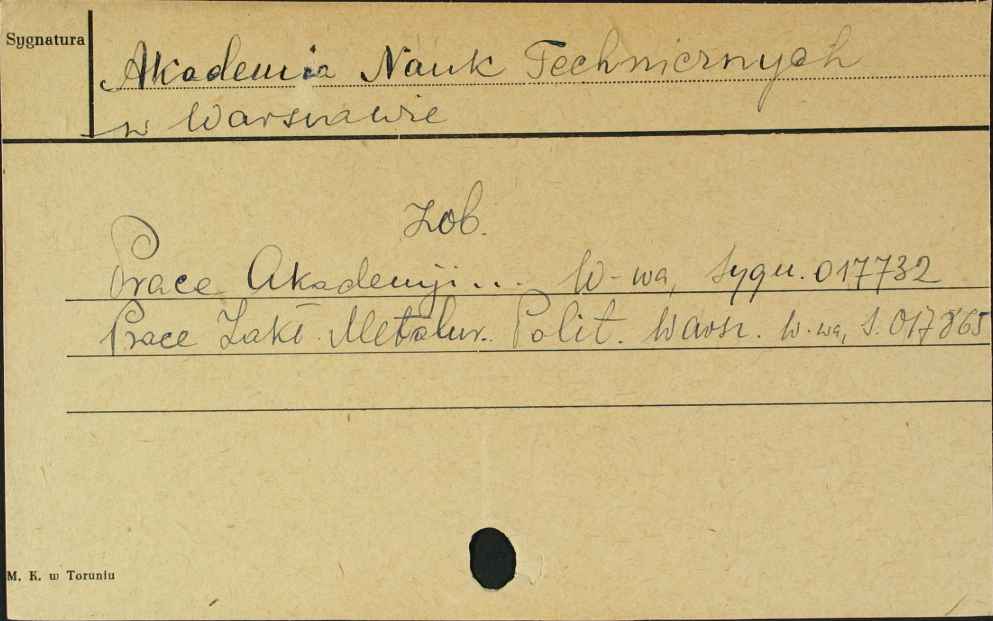 Sygnatura
Akademia Nauk Technicznych
w Warszawie
Zob.
Prace Akademji... W-wa, Sygn. 017732
Prace Zakł. Metalur. Polit. Warsz. W-wa, S. 017865
M. K. w Toruniu